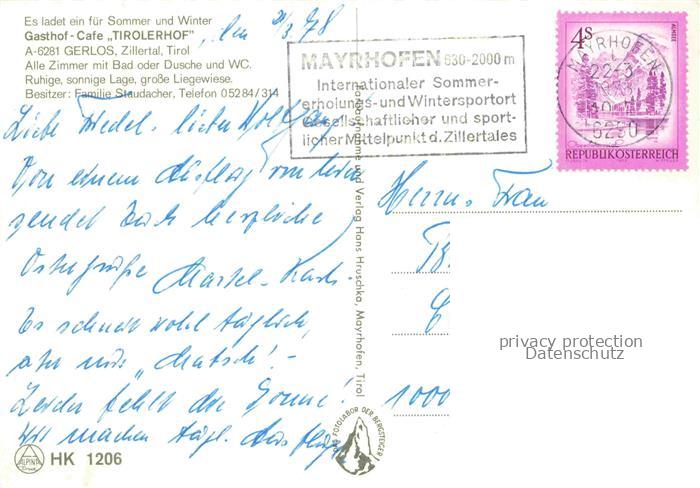 Es ladet ein für Sommer und Winter
Gasthof-Cafe „TIROLERHOF"
A-6281 GERLOS, Zillertal, Tirol
Alle Zimmer mit Bad oder Dusche und WC.
Ruhige, sonnige Lage, große Liegewiese.
Besitzer: Familie Staudacher, Telefon 05284/314
, den 21/3 78
MAYRHOFEN 630-2000 m
Internationaler Sommer-
erholungs- und Wintersportort
Gesellschaftlicher und sport-
licher Mittelpunkt d. Zillertales
4 S
ALMSEE
MAYRHOFEN
22.-3
6290
REPUBLIK ÖSTERREICH
Liebe Friedel, lieber
Von einem Ausflug von hier
sendet Euch herzliche
Ostergrüße
Es schneit wohl täglich,
aber nur „Matsch"! -
Leider fehlt die Sonne!
Wir machen tägl. Ausflüge
Verlag Hans Hruschka, Mayrhofen, Tirol
Herrn u. Frau
1000
privacy protection
Datenschutz
FOTOLABOR DER BERGSTEIGER
ALPINA
HK 1206